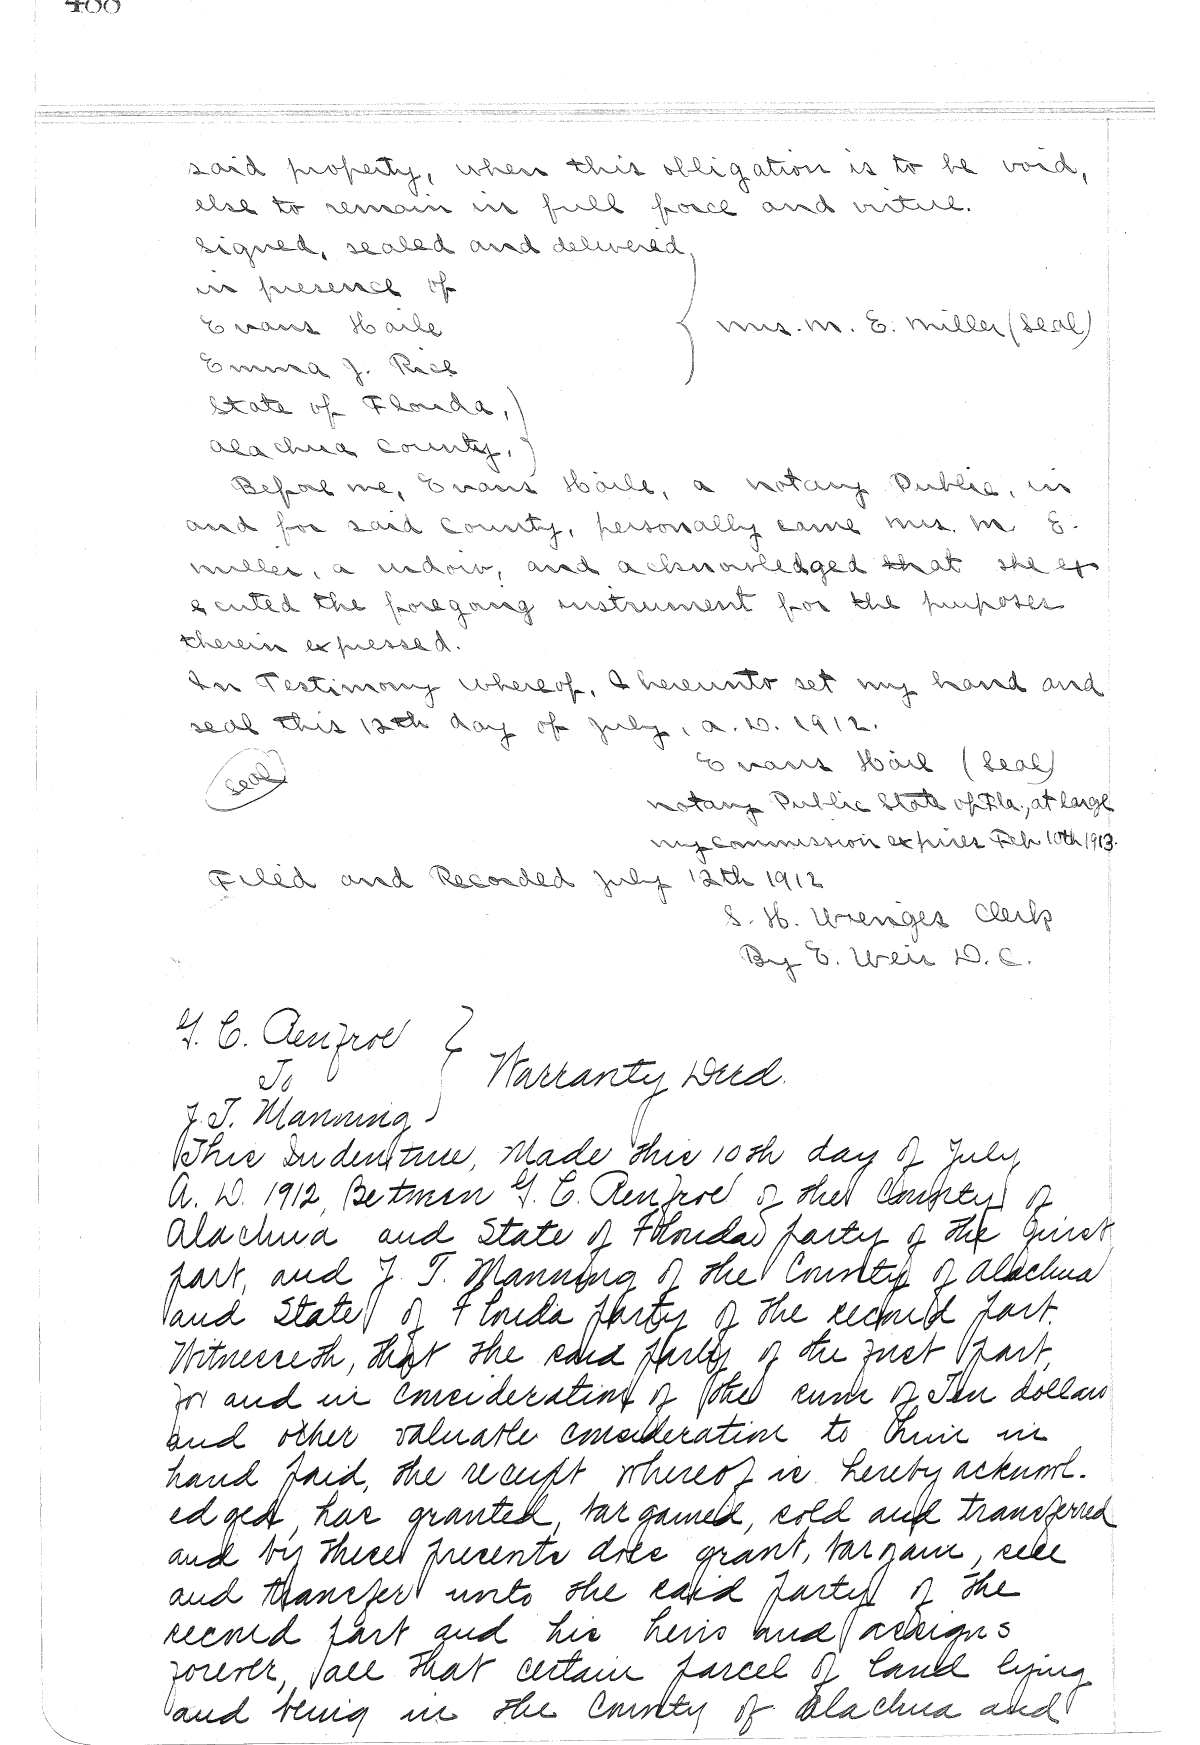 said property, when this obligation is to be void,
else to remain in full force and virtue.
Signed, sealed and delivered,
in presence of
Evans Haile
Mrs. M. E. Miller (Seal)
Emma J. Rice
State of Florida,
Alachua County,
Before me, Evans Haile, a Notary Public, in
and for said County, personally came Mrs. M. E.
Miller, a widow, and acknowledged that she ex
ecuted the foregoing instrument for the purposes
therein expressed.
In Testimony whereof, I hereunto set my hand and
seal this 12th day of July, A. D. 1912.
Evans Haile (Seal)
(Seal)
Notary Public State of Fla., at large
My commission expires Feb 10th 1913.
Filed and Recorded July 12th 1912
S. H. Wienges Clerk
By E. Weir D. C.
G. C. Renfroe
To
Warranty Deed.
J. T. Manning
This Indenture, Made this 10th day of July
A. D. 1912, Between G. C. Renfroe of the County of
Alachua and State of Florida party of the first
part, and J. T. Manning of the County of Alachua
and State of Florida party of the second part.
Witnesseth, that the said party of the first part,
for and in consideration of the sum of Ten dollars
and other valuable consideration to him in
hand paid, the receipt whereof is hereby acknowl.
edged, has granted, bargained, sold and transferred
and by these presents does grant, bargain, sell
and transfer unto the said party of the
second part and his heirs and assigns
forever, all that certain parcel of land lying
and being in the County of Alachua and